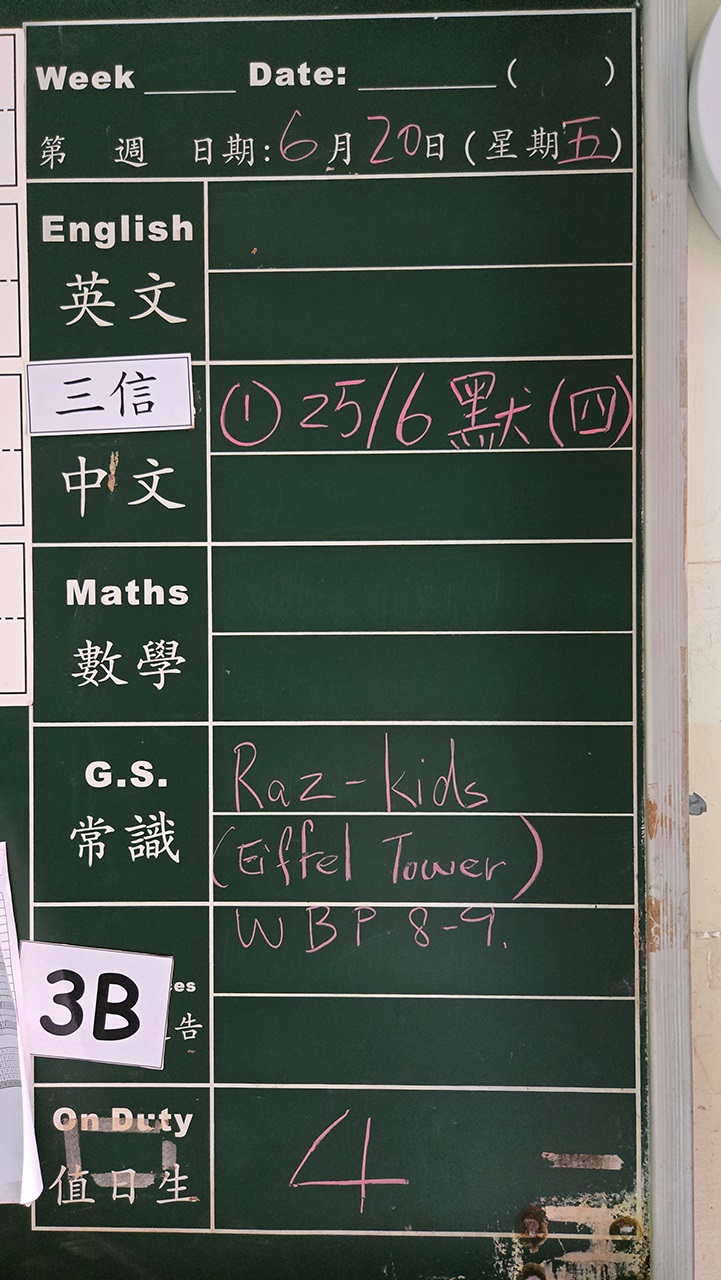 Week ____ Date: ______ ( )
第 週 日期:6月20日(星期五)
English
英文
三信
① 25/6 默(四)
中文
Maths
數學
G.S.
常識
Raz-kids
(Eiffel Tower)
WBP 8-9.
3B
告
On Duty
值日生
4